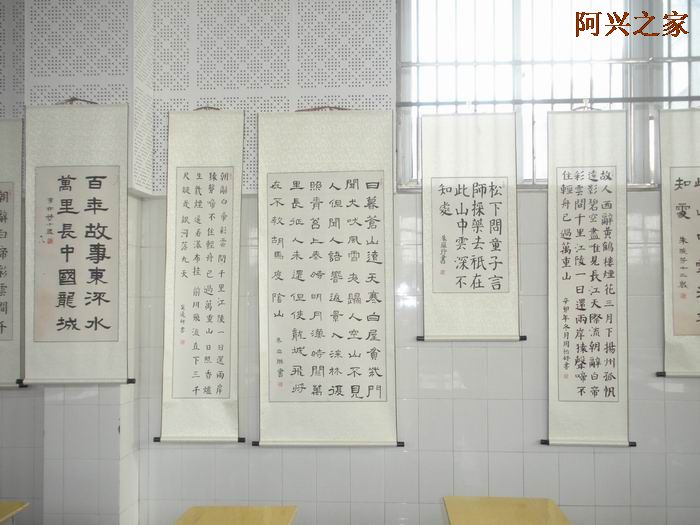 阿兴之家
故人西辭黃鶴樓煙花三月下揚州孤帆
遠影碧空盡惟見長江天際流朝辭白帝
彩雲間千里江陵一日還兩岸猿聲啼不
住輕舟已過萬重山
松下問童子言
師採藥去祇在
此山中雲深不
知處
日暮蒼山遠天寒白屋貧柴門
聞犬吠風雪夜歸人空山不見
人但聞人語響返景入深林復
照青苔上秦時明月漢時關萬
里長征人未還但使龍城飛將
在不教胡馬度陰山
朝辭白帝彩雲間千里江陵一日還兩岸
猿聲啼不住輕舟已過萬重山日照香爐
生紫煙遙看瀑布挂前川飛流直下三千
尺疑是銀河落九天
百年故事東流水
萬里長中國龍城
朝辭白帝彩雲間千